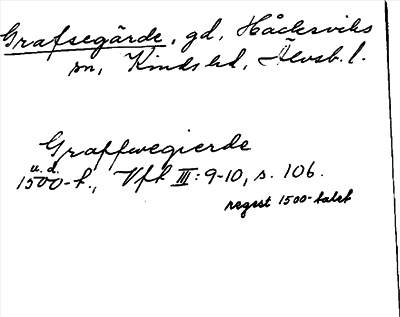 Grafsegärde, gd, Håcksviks
sn, Kinds hd, Älvsb. l.
Graffwegierde
u. d.
1500-t., Vfk III: 9-10, s. 106.
regest 1500-talet